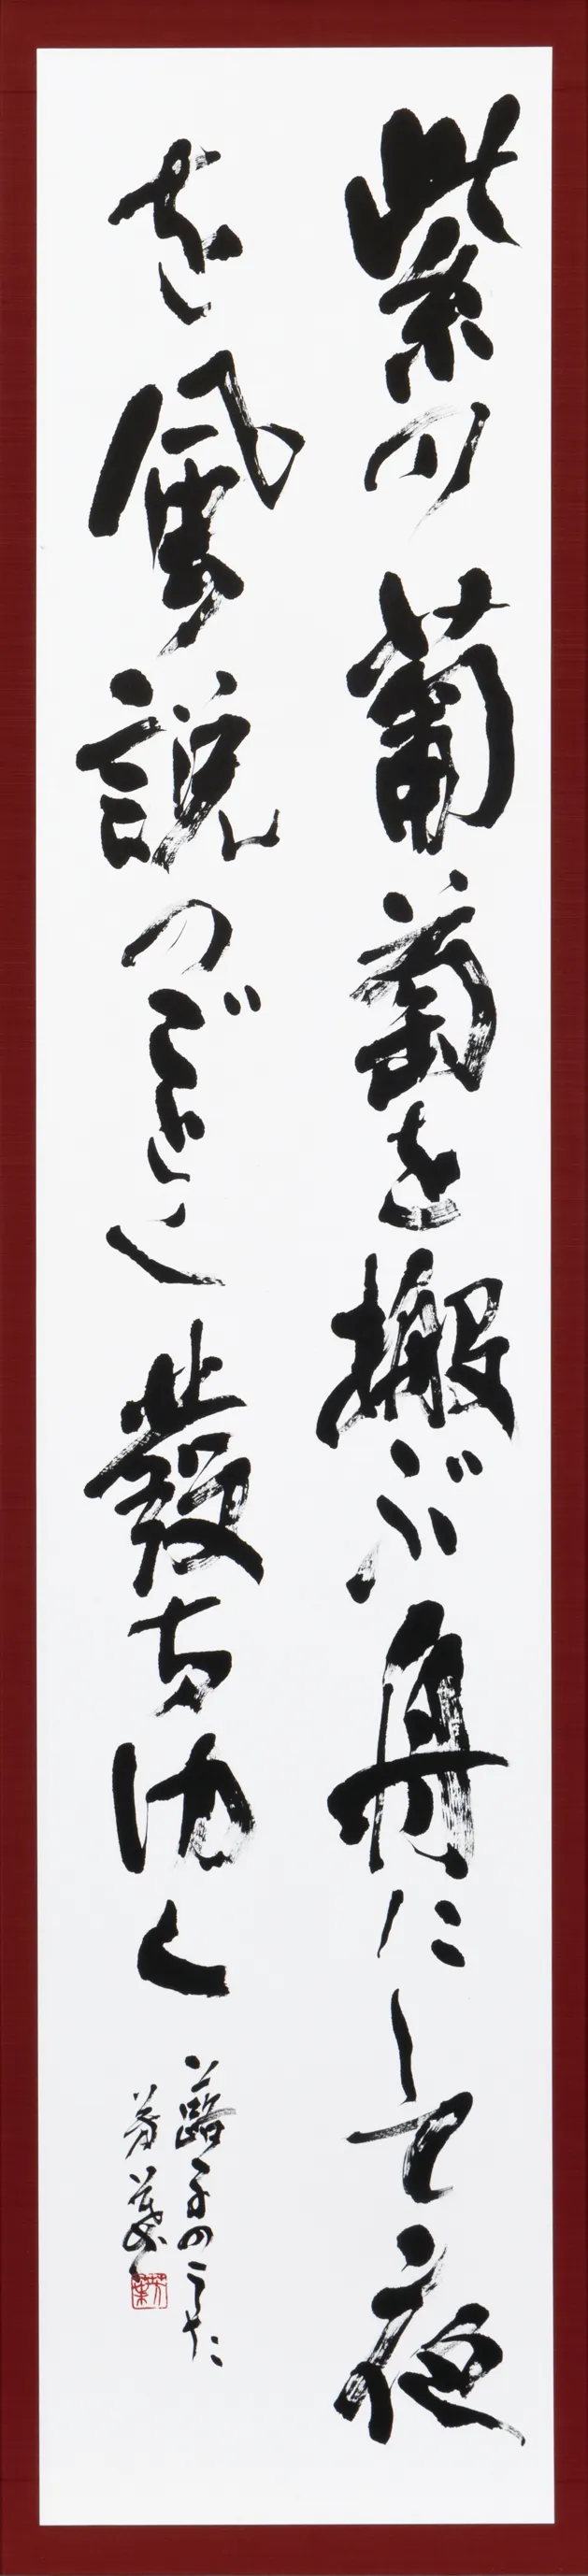 紫の葡萄を搬ぶ舟にして夜
を風説のごとく發ちゆく
蕗子のうた
芳葉